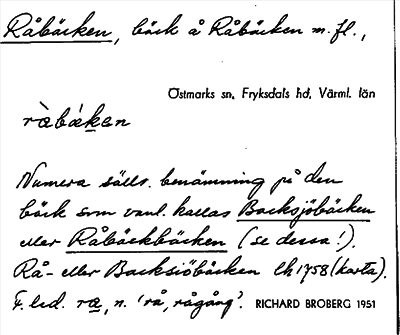 Råbäcken, bäck å Råbäcken m.fl.,
Östmarks sn, Fryksdals hd, Värml. län
Numera sälls. benämning på den
bäck som vanl. kallas Backsjöbäcken
eller Råbäckbäcken (se dessa!).
Rå- eller Backsiöbäcken Ch 1758 (karta).
F. led. ra, n. 'rå, rågång'. RICHARD BROBERG 1951